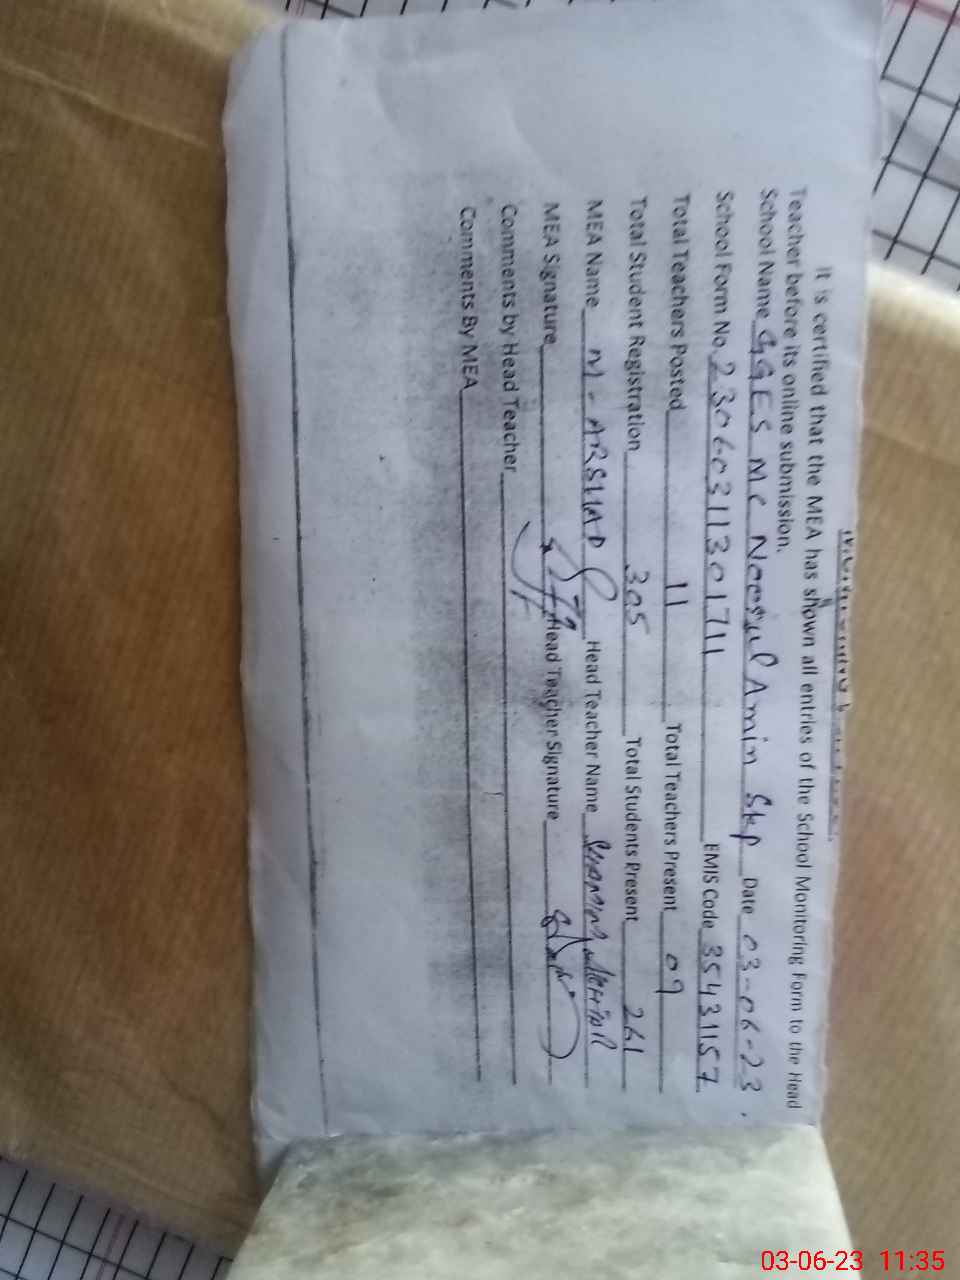 It is certified that the MEA has shown all entries of the School Monitoring Form to the Head
Teacher before its online submission.
School Name GGES MC Noorul Amin Skp Date 03-06-23.
School Form No. 23060311301711 EMIS Code 35431157
Total Teachers Posted 11 Total Teachers Present 09
Total Student Registration 305 Total Students Present 261
MEA Name M-ARSHAD Head Teacher Name
MEA Signature Head Teacher Signature
Comments by Head Teacher
Comments By MEA
03-06-23 11:35